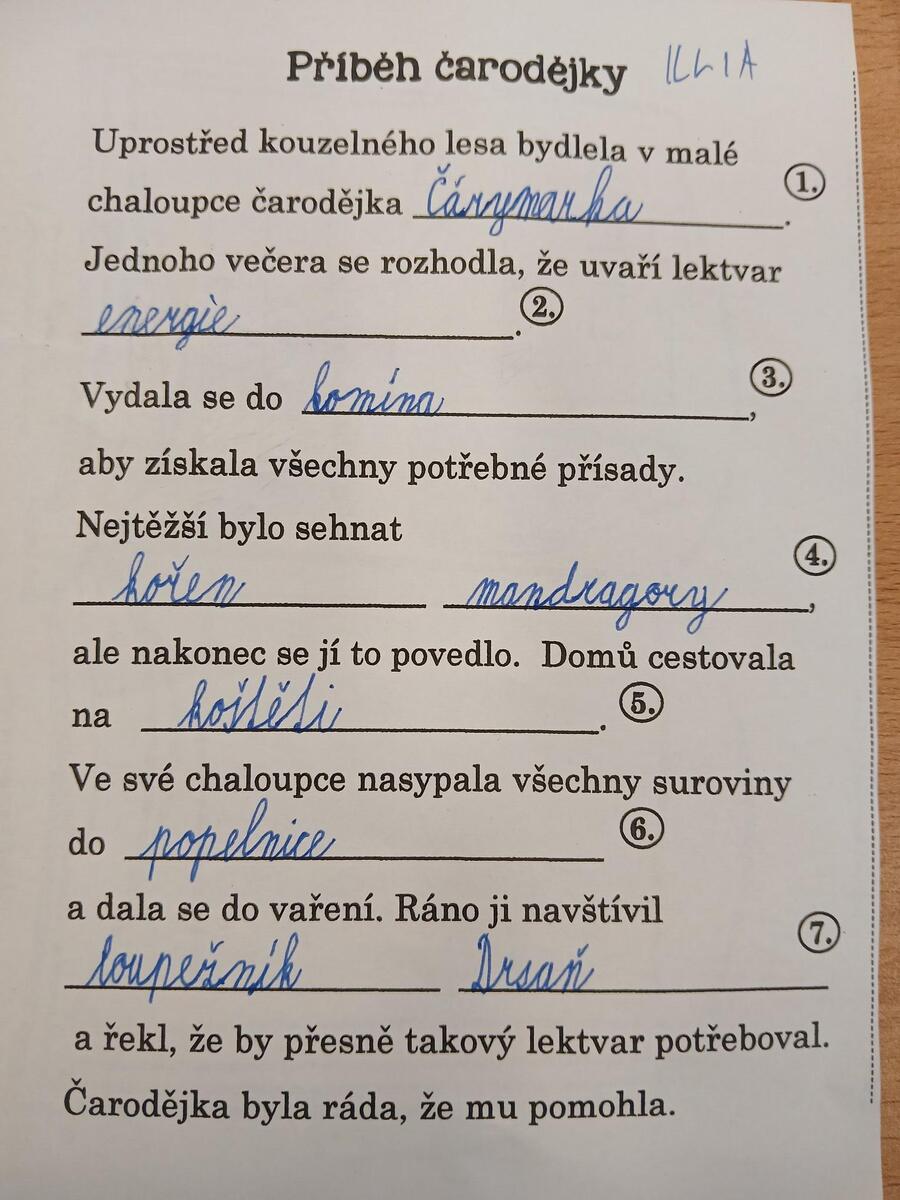 Příběh čarodějky ILLIA
Uprostřed kouzelného lesa bydlela v malé
chaloupce čarodějka Čárymarka. 1.
Jednoho večera se rozhodla, že uvaří lektvar
energie. 2.
Vydala se do komína, 3.
aby získala všechny potřebné přísady.
Nejtěžší bylo sehnat
kořen mandragory, 4.
ale nakonec se jí to povedlo. Domů cestovala
na koštěti. 5.
Ve své chaloupce nasypala všechny suroviny
do popelnice 6.
a dala se do vaření. Ráno ji navštívil
loupežník Drsaň 7.
a řekl, že by přesně takový lektvar potřeboval.
Čarodějka byla ráda, že mu pomohla.